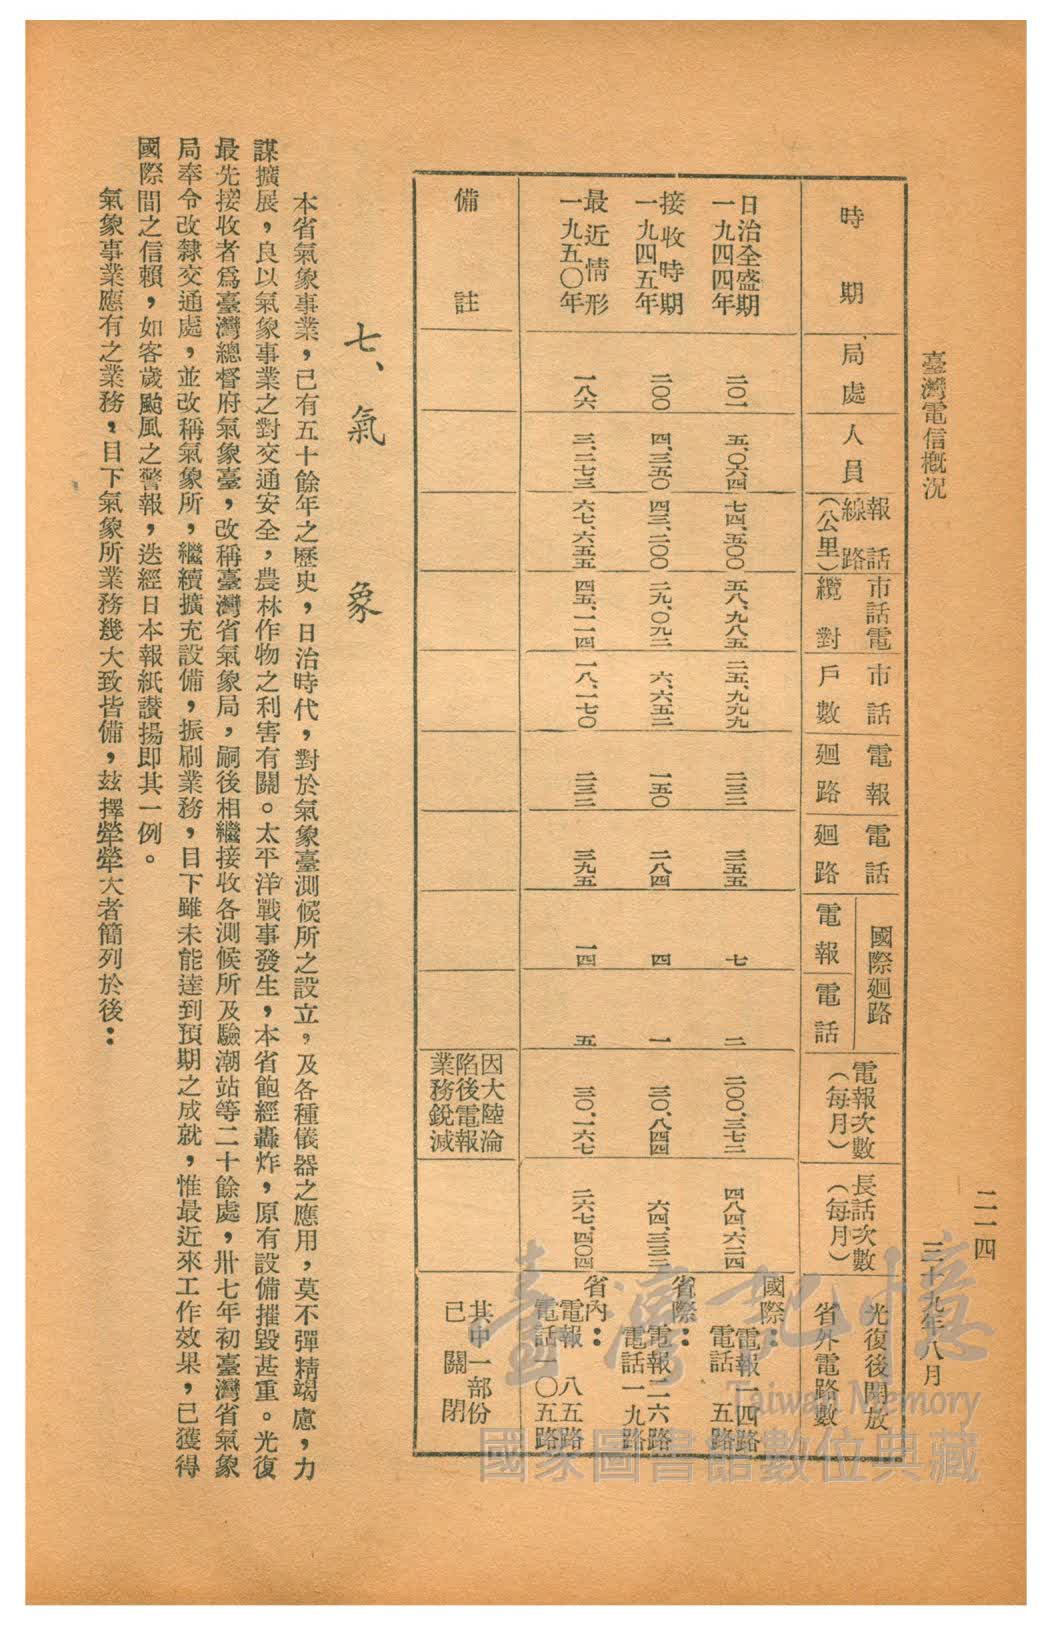 二一四
臺灣電信概況
三十九年八月
時期
局處
人員
報話線路(公里)
市話電纜對
市話戶數
電報廻路
電話廻路
國際廻路
電報
電話
電報次數(每月)
長話次數(每月)
光復後開放省外電路數
日治全盛期一九四四年
二〇一
五、〇六四
七四、五〇〇
五八、九八五
二五、九九九
二三二
三五五
七
二
二〇〇、三七三
四八四、六二四
國際:電報一四路電話五路
接收時期一九四五年
二〇〇
四、三五〇
四三、二〇〇
二九、〇九二
六、六五二
一五〇
二八四
四
一
三〇、八四四
六四、三三三
省際:電報二六路電話一九路
最近情形一九五〇年
一八六
三、二七三
六七、六五五
四五、一一四
一八、一七〇
二三二
三九五
一四
五
三〇、一六七
二六七、四〇四
省內:電報八五路電話一〇五路
備註
因大陸淪陷後電報業務銳減
其中一部份已關閉
七、氣象
本省氣象事業,已有五十餘年之歷史,日治時代,對於氣象臺測候所之設立,及各種儀器之應用,莫不殫精竭慮,力
謀擴展,良以氣象事業之對交通安全,農林作物之利害有關。太平洋戰事發生,本省飽經轟炸,原有設備摧毀甚重。光復
最先接收者爲臺灣總督府氣象臺,改稱臺灣省氣象局,嗣後相繼接收各測候所及驗潮站等二十餘處,卅七年初臺灣省氣象
局奉令改隸交通處,並改稱氣象所,繼續擴充設備,振刷業務,目下雖未能達到預期之成就,惟最近來工作效果,已獲得
國際間之信賴,如客歲颱風之警報,迭經日本報紙讚揚即其一例。
氣象事業應有之業務,目下氣象所業務幾大致皆備,玆擇犖犖大者簡列於後:
臺灣記憶
Taiwan Memory
國家圖書館數位典藏